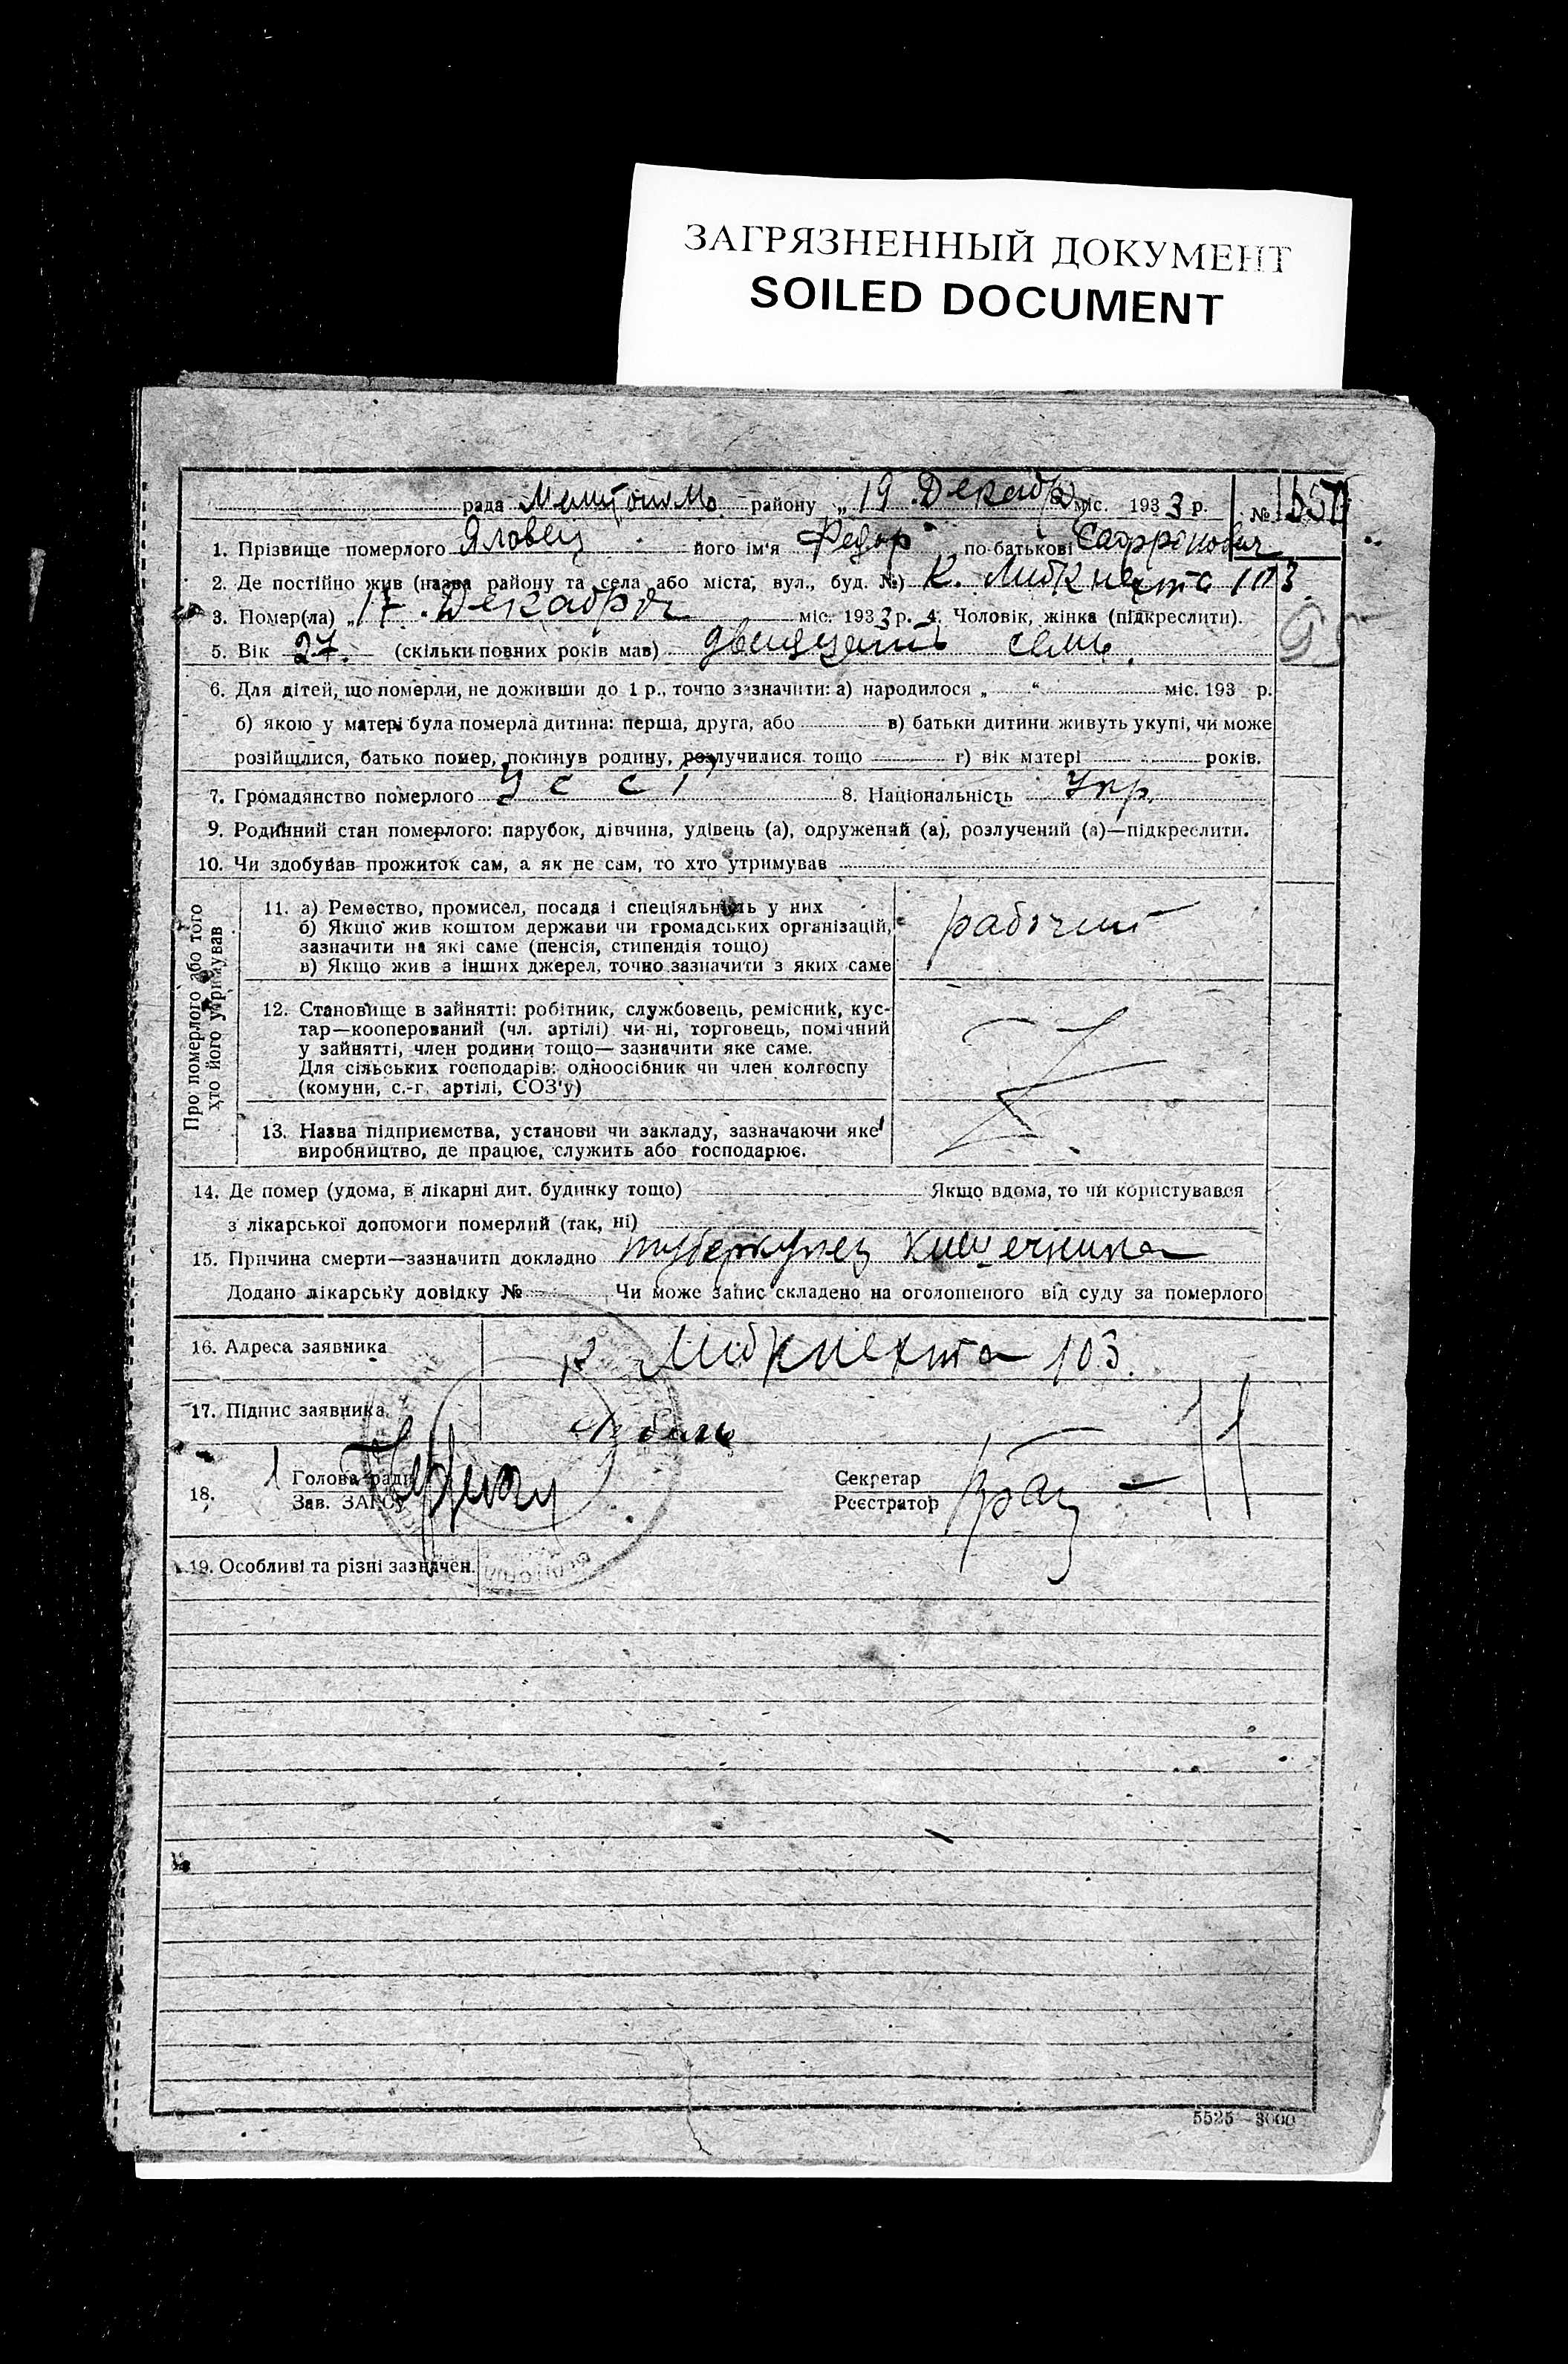 ЗАГРЯЗНЕННЫЙ ДОКУМЕНТ
SOILED DOCUMENT
рада району „19 Декабря міс. 1933 р. №
1. Прізвище померлого Яловец його ім'я Федор по батькові Сафронович
2. Де постійно жив (назва району та села або міста, вул., буд. №) К. Либкнехта 103.
3. Помер(ла) „17. Декабря міс. 1933 р. 4. Чоловік, жінка (підкреслити).
5. Вік 27. (скільки повних років мав) двадцать семь.
6. Для дітей, що померли, не доживши до 1 р., точно зазначити: а) народилося „ “ міс. 193 р.
б) якою у матері була померла дитина: перша, друга, або в) батьки дитини живуть укупі, чи може
розійшлися, батько помер, покинув родину, розлучилися тощо г) вік матері років.
7. Громадянство померлого У С С Р 8. Національність Укр.
9. Родинний стан померлого: парубок, дівчина, удівець (а), одружений (а), розлучений (а)—підкреслити.
10. Чи здобував прожиток сам, а як не сам, то хто утримував
Про померлого або того
хто його утримував
11. а) Ремество, промисел, посада і спеціяльність у них
б) Якщо жив коштом держави чи громадських організацій,
зазначити на які саме (пенсія, стипендія тощо)
в) Якщо жив з інших джерел, точно зазначити з яких саме
рабочий
12. Становище в зайнятті: робітник, службовець, ремісник, кус-
тар—кооперований (чл. артілі) чи ні, торговець, помічний
у зайнятті, член родини тощо— зазначити яке саме.
Для сільських господарів: одноосібник чи член колгоспу
(комуни, с.-г. артілі, СОЗ'у)
13. Назва підприємства, установи чи закладу, зазначаючи яке
виробництво, де працює, служить або господарює.
14. Де помер (удома, в лікарні дит. будинку тощо) Якщо вдома, то чи користувався
з лікарської допомоги померлий (так, ні)
15. Причина смерти—зазначити докладно туберкулез кишечника
Додано лікарську довідку № Чи може запис складено на оголошеного від суду за померлого
16. Адреса заявника К Либкнехта 103.
17. Підпис заявника
18. Голова ради
Зав. ЗАГСу
Секретар
Реєстратор
19. Особливі та різні зазначен.
5525—3000